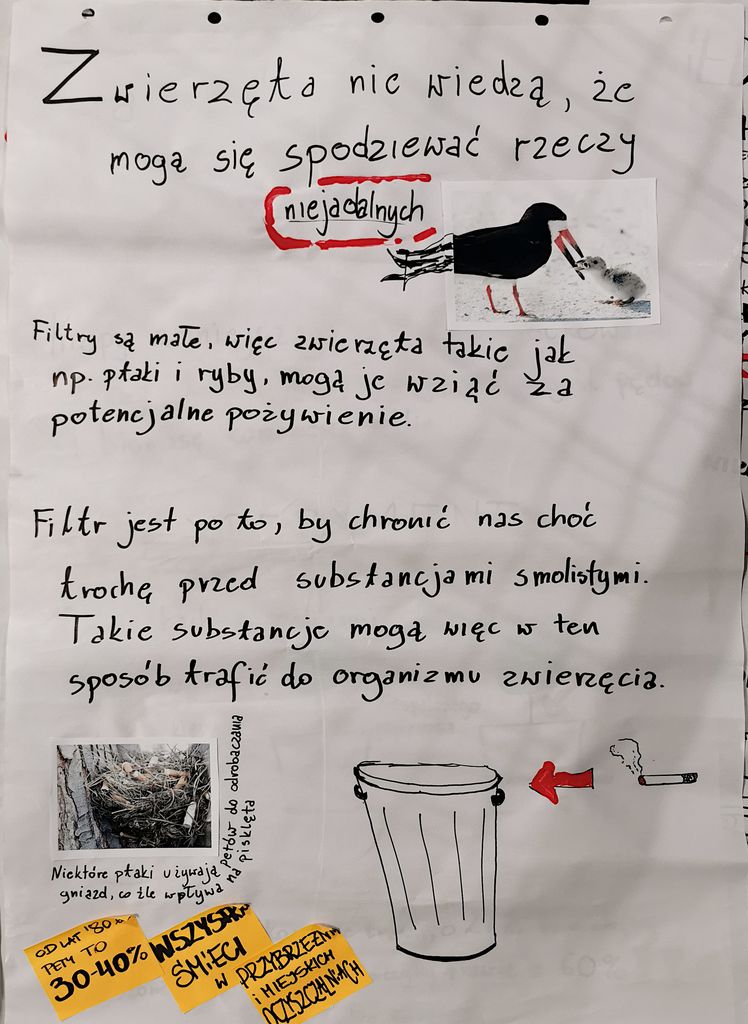 Zwierzęta nie wiedzą, że
mogą się spodziewać rzeczy
niejadalnych
Filtry są małe, więc zwierzęta takie jak
np. ptaki i ryby, mogą je wziąć za
potencjalne pożywienie.
Filtr jest po to, by chronić nas choć
trochę przed substancjami smolistymi.
Takie substancje mogą więc w ten
sposób trafić do organizmu zwierzęcia.
Niektóre ptaki używają
petów do odrobaczania
gniazd, co źle wpływa
na pisklęta
OD LAT '80
PETY TO
30-40%
WSZYSTKICH
ŚMIECI
W PRZYBRZEŻNYCH
I MIEJSKICH
OCZYSZCZALNIACH